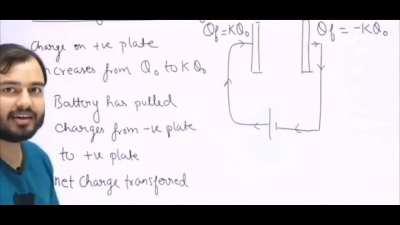 Charge on +ve plate
increases from Q₀ to KQ₀
Battery has pulled
charges from -ve plate
to +ve plate
net charge transferred
Qf = KQ₀
Qf = -KQ₀